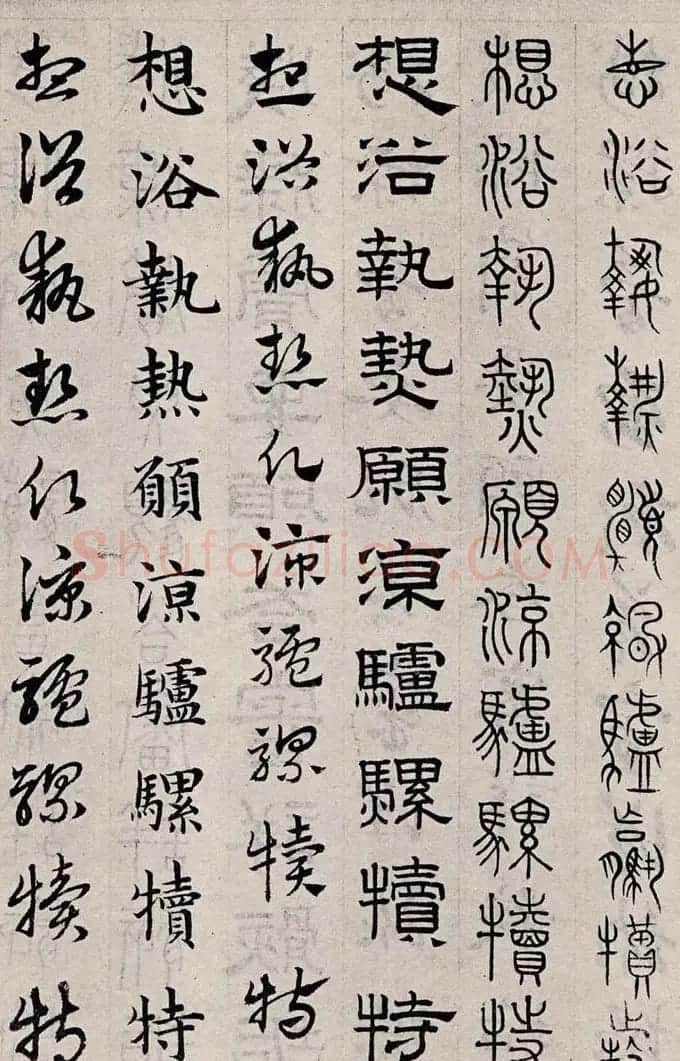 想浴執熱願涼驢騾犢特
想浴執熱願涼驢騾犢特
想浴執熱願涼驢騾犢特
想浴執熱願涼驢騾犢特
想浴執熱願涼驢騾犢特
想浴執熱願涼驢騾犢特
Shufaziliao.COM